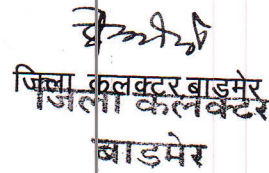 जिला कलक्टर बाड़मेर
जिला कलेक्टर
बाड़मेर